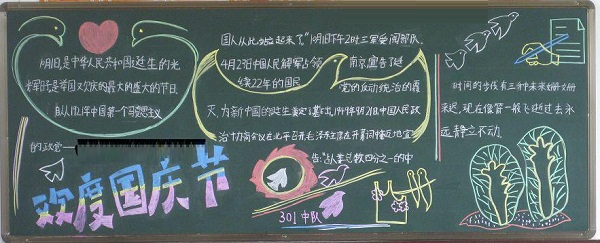 10月1日,是中华人民共和国诞生的光
荣节日,它是举国欢庆的最大的盛大的节日
自从1921年中国第一个马克思主义
的政党
欢度国庆节
国人从此站立起来了。"10月1日下午2时三军受阅部队
4月23日中国人民解放军占领
南京宣告延
续22年的国民
党的反动统治的覆
灭,为新中国的诞生奠定了基础,1949年9月21日,中国人民政
治协商会议在北平召开,毛泽东主席在开幕词中指出地宣
告:"占人类总数四分之一的中
301中队
时间的步伐有三种:未来姗姗
来迟,现在像箭一般飞逝,过去永
远静立不动